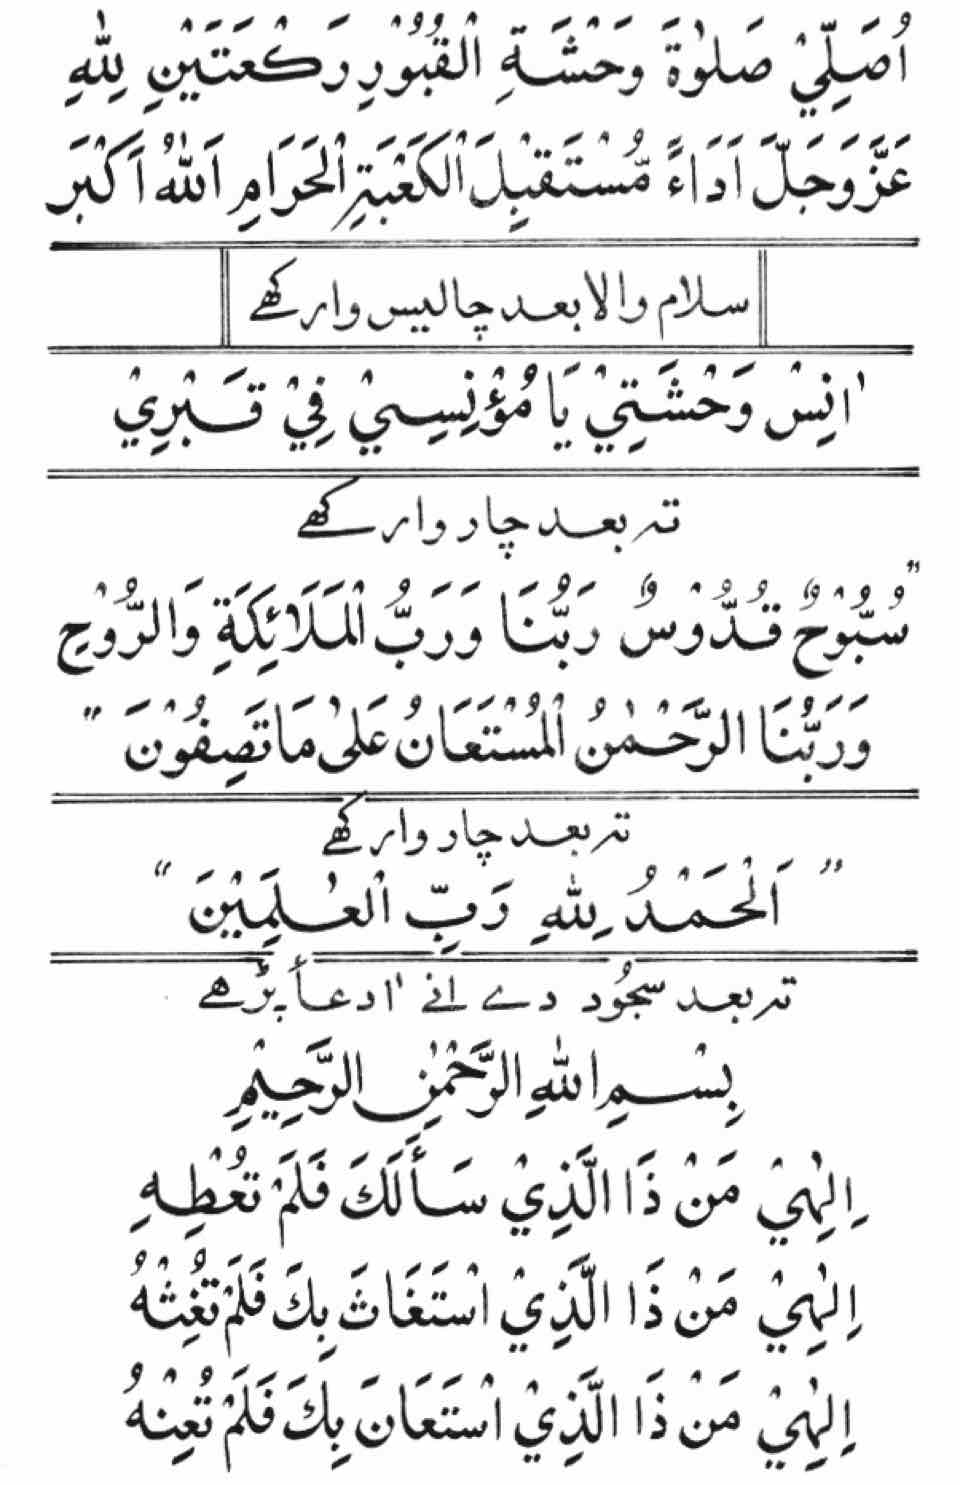 اُصَلِّيْ صَلوٰةَ وَحْشَةِ الْقُبُوْرِ رَكْعَتَيْنِ لِلّٰهِ
عَزَّ وَجَلَّ اَدَاءً مُّسْتَقْبِلَ الْكَعْبَةِ الْحَرَامِ اَللّٰهُ اَكْبَر
سلام والا بعد چاليس وار كهے
اٰنِسْ وَحْشَتِيْ يَا مُؤْنِسِيْ فِيْ قَبْرِيْ
ته بعد چار وار كهے
"سُبُّوْحٌ قُدُّوْسٌ رَبُّنَا وَرَبُّ الْمَلَائِكَةِ وَالرُّوْحِ
وَرَبُّنَا الرَّحْمٰنُ الْمُسْتَعَانُ عَلىٰ مَا تَصِفُوْنَ"
ته بعد چار وار كهے
"اَلْحَمْدُ لِلّٰهِ رَبِّ الْعٰلَمِيْنَ"
ته بعد سجُود دے انے اٰ دعاء پڑهے
بِسْمِ اللّٰهِ الرَّحْمٰنِ الرَّحِيْمِ
اِلٰهِيْ مَنْ ذَا الَّذِيْ سَأَلَكَ فَلَمْ تُعْطِهِ
اِلٰهِيْ مَنْ ذَا الَّذِيْ اسْتَغَاثَ بِكَ فَلَمْ تُغِثْهُ
اِلٰهِيْ مَنْ ذَا الَّذِيْ اسْتَعَانَ بِكَ فَلَمْ تُعِنْهُ